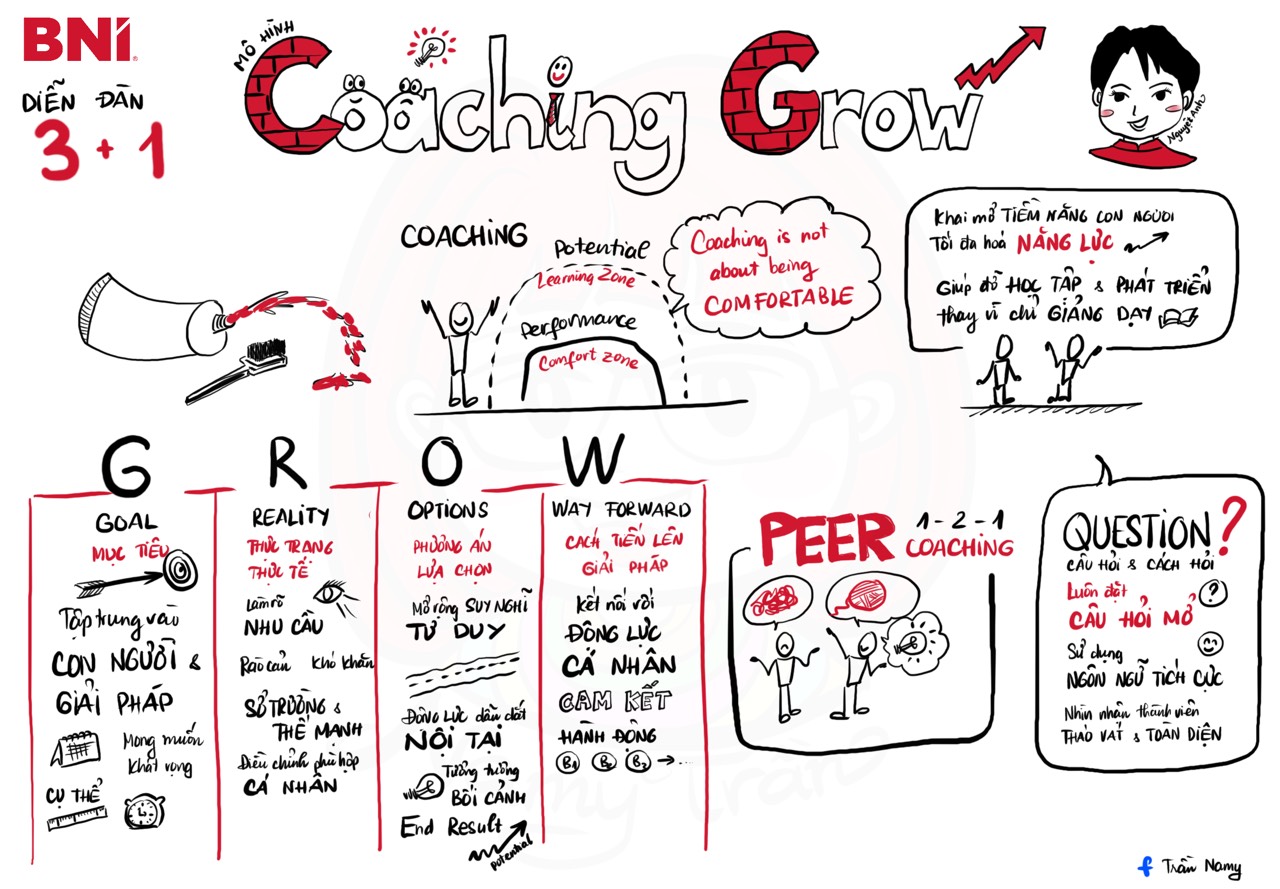 BNI
DIỄN ĐÀN
3 + 1
MÔ HÌNH
Coaching Grow
Nguyệt Ánh
COACHING
Potential
Learning Zone
Performance
Comfort zone
Coaching is not
about being
COMFORTABLE
Khai mở TIỀM NĂNG CON NGƯỜI
Tối đa hoá NĂNG LỰC
Giúp đỡ HỌC TẬP & PHÁT TRIỂN
thay vì chỉ GIẢNG DẠY
G
GOAL
MỤC TIÊU
Tập trung vào
CON NGƯỜI &
GIẢI PHÁP
Mong muốn
Khát vọng
CỤ THỂ
R
REALITY
THỰC TRẠNG
THỰC TẾ
Làm rõ
NHU CẦU
Rào cản Khó khăn
SỞ TRƯỜNG &
THẾ MẠNH
Điều chỉnh phù hợp
CÁ NHÂN
O
OPTIONS
PHƯƠNG ÁN
LỰA CHỌN
Mở rộng SUY NGHĨ
TƯ DUY
ĐỘNG LỰC dẫn dắt
NỘI TẠI
Tưởng tượng
BỐI CẢNH
End Result
potential
W
WAY FORWARD
CÁCH TIẾN LÊN
GIẢI PHÁP
Kết nối với
ĐỘNG LỰC
CÁ NHÂN
CAM KẾT
HÀNH ĐỘNG
B1 B2 B3 → ...
PEER 1-2-1
COACHING
QUESTION?
CÂU HỎI & CÁCH HỎI
Luôn đặt
CÂU HỎI MỞ
Sử dụng
NGÔN NGỮ TÍCH CỰC
Nhìn nhận thành viên
THÁO VÁT & TOÀN DIỆN
Trần Namy